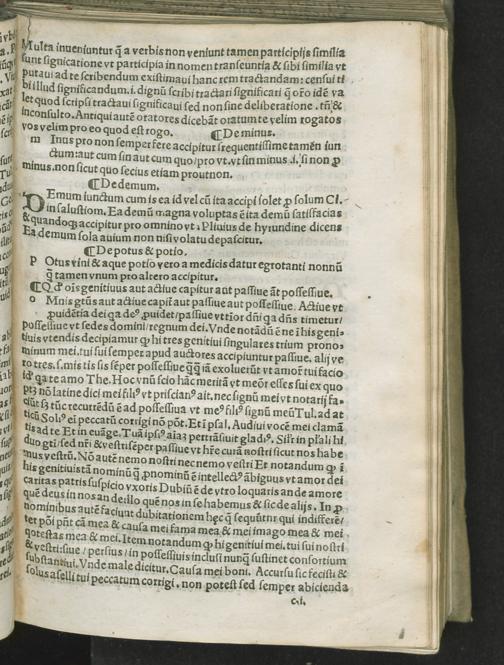 Multa inueniuntur q̄ a verbis non veniunt tamen participijs similia
sunt signicatione vt participia in nomen transeuntia & sibi similia vt
putaui ad te scribendum existimaui hanc rem tractandam: censui ti
bi illud significandum .i. dignū scribi tractari significari q̄ oīo idē va
let quod scripsi tractaui significaui sed non sine deliberatione . tn̄ &
inconsulto. Antiqui autē oratores dicebāt oratum te velim rogatos
vos velim pro eo quod est rogo. ¶ De minus.
m Inus pro non semper fere accipitur frequentissime tamēn iun
ctum: aut cum sin aut cum quo/pro vt. vt sin minus .i. si non ꝓ
minus. non sicut quo secius etiam proutnon.
¶ De demum.
DEmum iunctum cum is ea id vel cū ita accipi solet ꝓ solum CI.
in salustiom. Ea demū magna voluptas ē ita demū satisfacias
& quandoqȝ accipitur pro omnino vt: Pliuius de hyrundine dicens
Ea demum sola auium non nisi volatu depascitur.
¶ De potus & potio.
p Otus vini & aque potio vero a medicis datur egrotanti nonnū
q̄ tamen vnum pro altero accipitur.
¶ Q. d' oīs genitiuus aut actiue capitur aut passiue āt possessiue.
o Mnis gtūs aut actiue capiē aut passiue aut possessiue. Actiue vt
ꝓuidētia dei qa deꝰ ꝓuidet/passiue vt tior dn̄i qa dn̄s timetur/
possessiue vt sedes domini/regnum dei. Vnde notādū ē ne ī his geni-
tiuis vtendis decipiamur qꝫ hi tres genitiui singulares trium prono-
minum mei.tui sui semper apud auctores accipiuntur passiue. alij ve
ro tres. s. mis tis sis sēper possessiue q̄q̄ iā exoluerūt vt amor tui facio
id' qa te amo The. Hoc vnū scio hāc meritā vt meōr esses sui ex quo
ptȝ nō latine dici mei filiꝰ vt priscianꝰ ait. nec signū mei vt notarij fa-
ciūt sȝ tūc recurrēdū ē ad possessiua vt meꝰ filiꝰ signū meū Tul. ad at
ticū Soliꝰ ei peccatū corrigi nō pōt. Et ī psal. Audiui vocē mei clamā
tis ad te Et in euāge. Tuā ipsiꝰ aīaȝ pertrāsiuit gladiꝰ. Sil'r in pl'ali hi
duo gti: sed nr̄i & vestri sēper passiue vt hr̄e curā nostri sicut nos habe
mus vestrū. Nō autē nemo nostri nec nemo vestri Et notandum qꝫ ī
his genitiuis tā nominū q̄ ꝓnominū ē intellectꝰ ābiguus vt amor dei
caritas patris suspicio vxoris Dubiū ē de vtro loquaris an de amore
quē deus in nos an de illo quē nos in se habemus & sic de alijs. In ꝓ
nominibus autē faciunt dubitationem hęc q̄ sequūtur qui indifferē/
ter pōi pn̄t cā mea & causa mei fama mea & mei imago mea & mei
potestas mea & mei. Item notandum qꝫ hi genitiui mei. tui sui nostri
& vestri: siue / persius / in possessiuis inclusi nunq̄ sustinet consortium
substantiui. Vnde male dicitur. Causa mei boni. Accursu sic fecisti &
solus aselli tui peccatum corrigi. non potest sed semper abicienda
c.i.